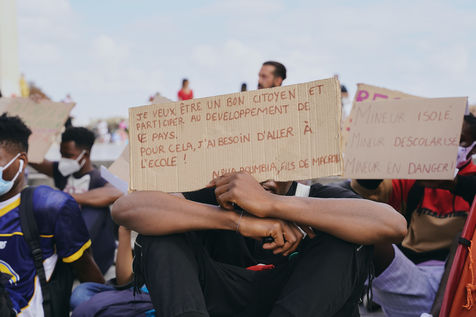 JE VEUX ÊTRE UN BON CITOYEN ET
PARTICIPER AU DEVELOPPEMENT DE
CE PAYS.
POUR CELA, J'AI BESOIN D'ALLER À
L'ECOLE !
DOUMBIA, FILS DE MACRON
MINEUR ISOLÉ
MINEUR DESCOLARISÉ
MINEUR EN DANGER